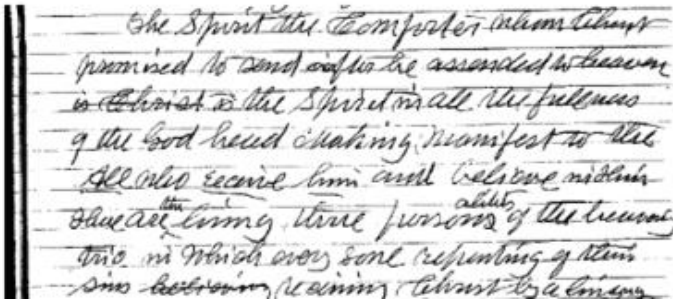 The Spirit the Comforter whom Christ
promised to send after he assended to heaven
is Christ is the Spirit in all the fulness
of the God head making manifest to the
All who receive him and believe in Him
thare are the living three personalities of the heavenly
trio in which every soul repenting of their
sins believing receiving Christ by a living